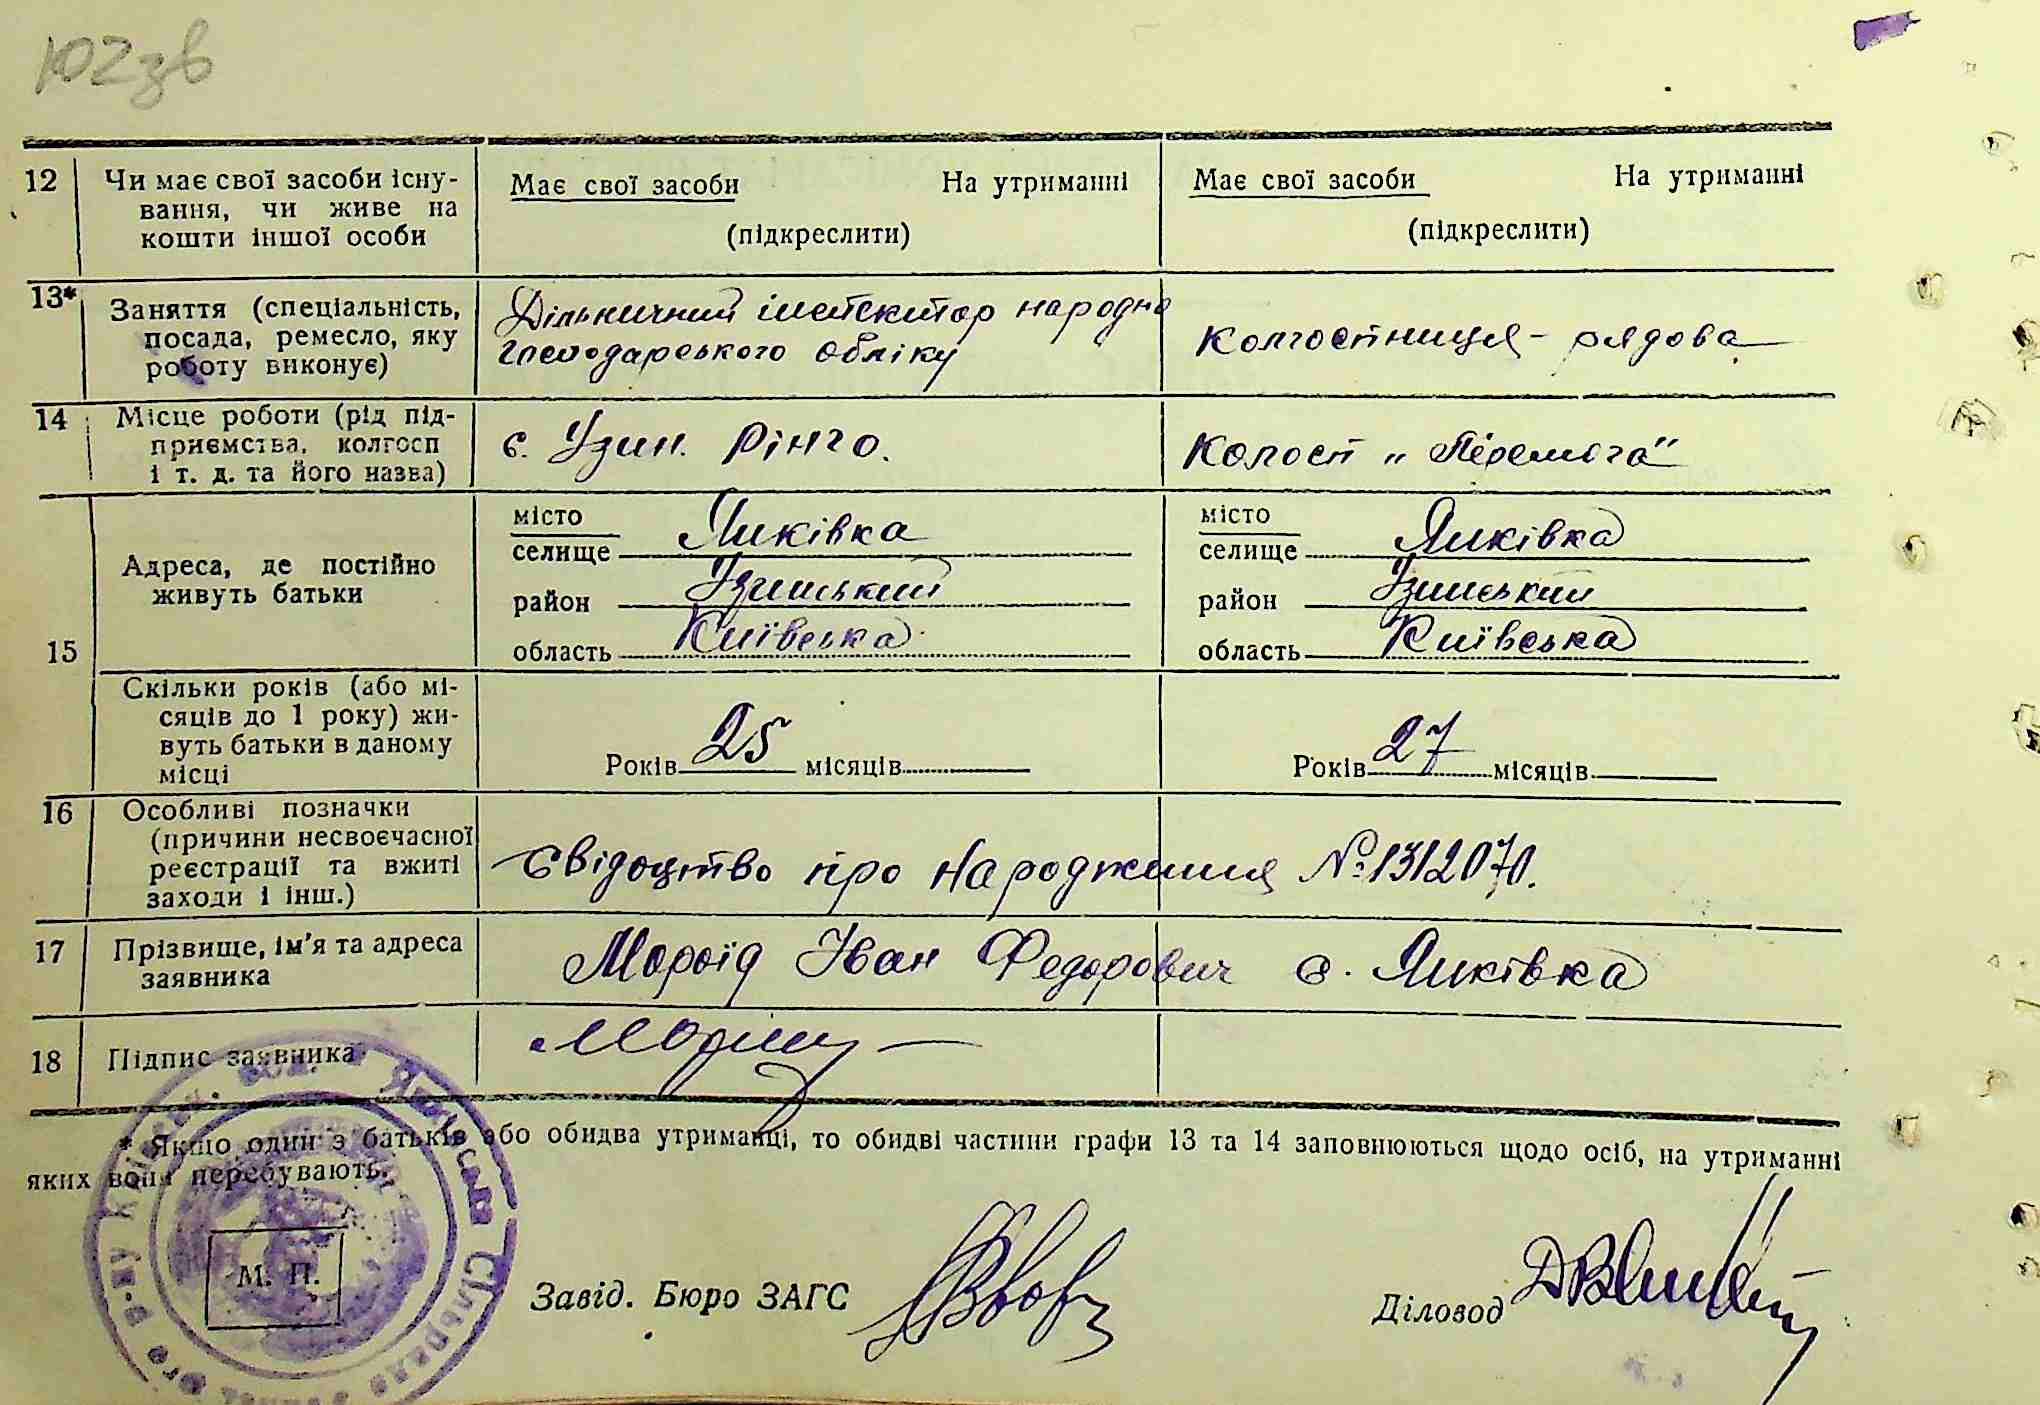 102зв
12 Чи має свої засоби існу-
вання, чи живе на
кошти іншої особи
Має свої засоби На утриманні
(підкреслити)
Має свої засоби На утриманні
(підкреслити)
13* Заняття (спеціальність,
посада, ремесло, яку
роботу виконує)
Дільничний інспектор народно
господарського обліку
Колгоспниця - рядова
14 Місце роботи (рід під-
приємства, колгосп
і т. д. та його назва)
с. Узин. Рінго.
Колгосп „Перемога"
15 Адреса, де постійно
живуть батьки
місто
селище Яцківка
район Узинський
область Київська
місто
селище Яцківка
район Узинський
область Київська
Скільки років (або мі-
сяців до 1 року) жи-
вуть батьки в даному
місці
Років 25 місяців
Років 27 місяців
16 Особливі позначки
(причини несвоєчасної
реєстрації та вжиті
заходи і інш.)
Свідоцтво про народження № 1312070.
17 Прізвище, ім'я та адреса
заявника
Мороїд Іван Федорович с. Яцківка
18 Підпис заявника
* Якщо один з батьків або обидва утриманці, то обидві частини графи 13 та 14 заповнюються щодо осіб, на утриманні
яких вони перебувають.
М. П.
Завід. Бюро ЗАГС
Діловод